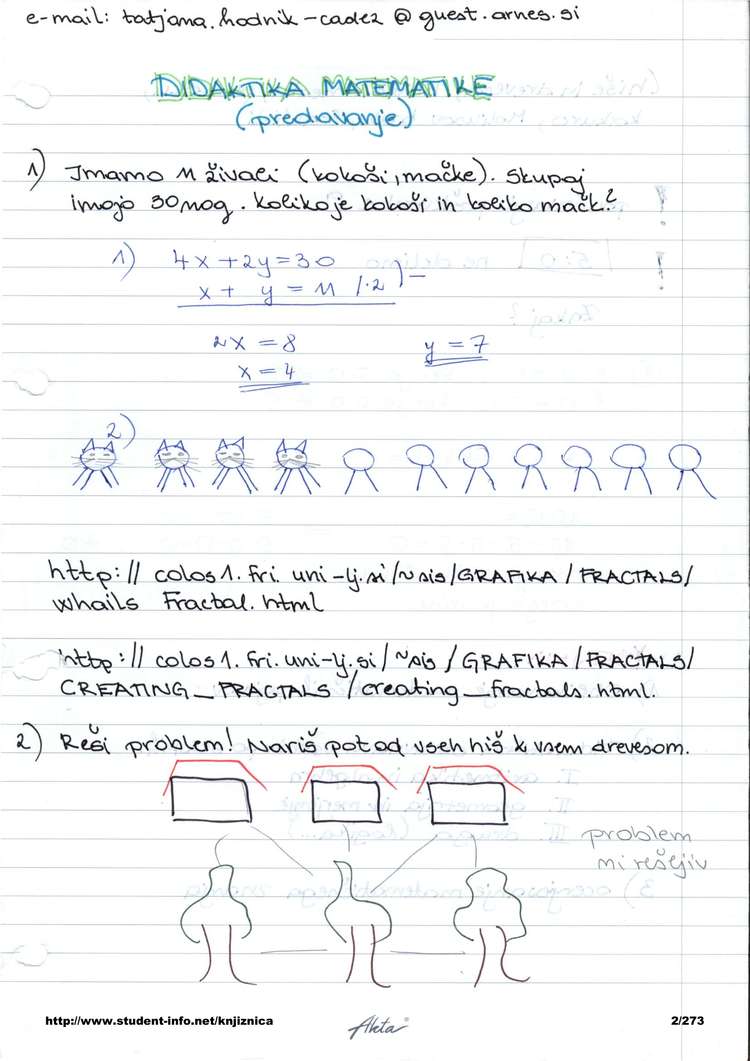 e-mail: tatjana.hodnik-cadez @ guest.arnes.si
DIDAKTIKA MATEMATIKE
(predavanje)
1) Imamo 11 živali (kokoši, mačke). Skupaj
imajo 30 nog. Koliko je kokoši in koliko mačk?
1) 4x + 2y = 30
x + y = 11 /·2 ) -
2x = 8 y = 7
x = 4
2)
http://colos1.fri.uni-lj.si/~sis/GRAFIKA/FRACTALS/
whails Fractal.html
http://colos1.fri.uni-lj.si/~sis/GRAFIKA/FRACTALS/
CREATING_FRACTALS/creating_fractals.html.
2) Reši problem! Nariš pot od vseh hiš k vsem drevesom.
problem
ni rešljiv
http://www.student-info.net/knjiznica
Akta
2/273